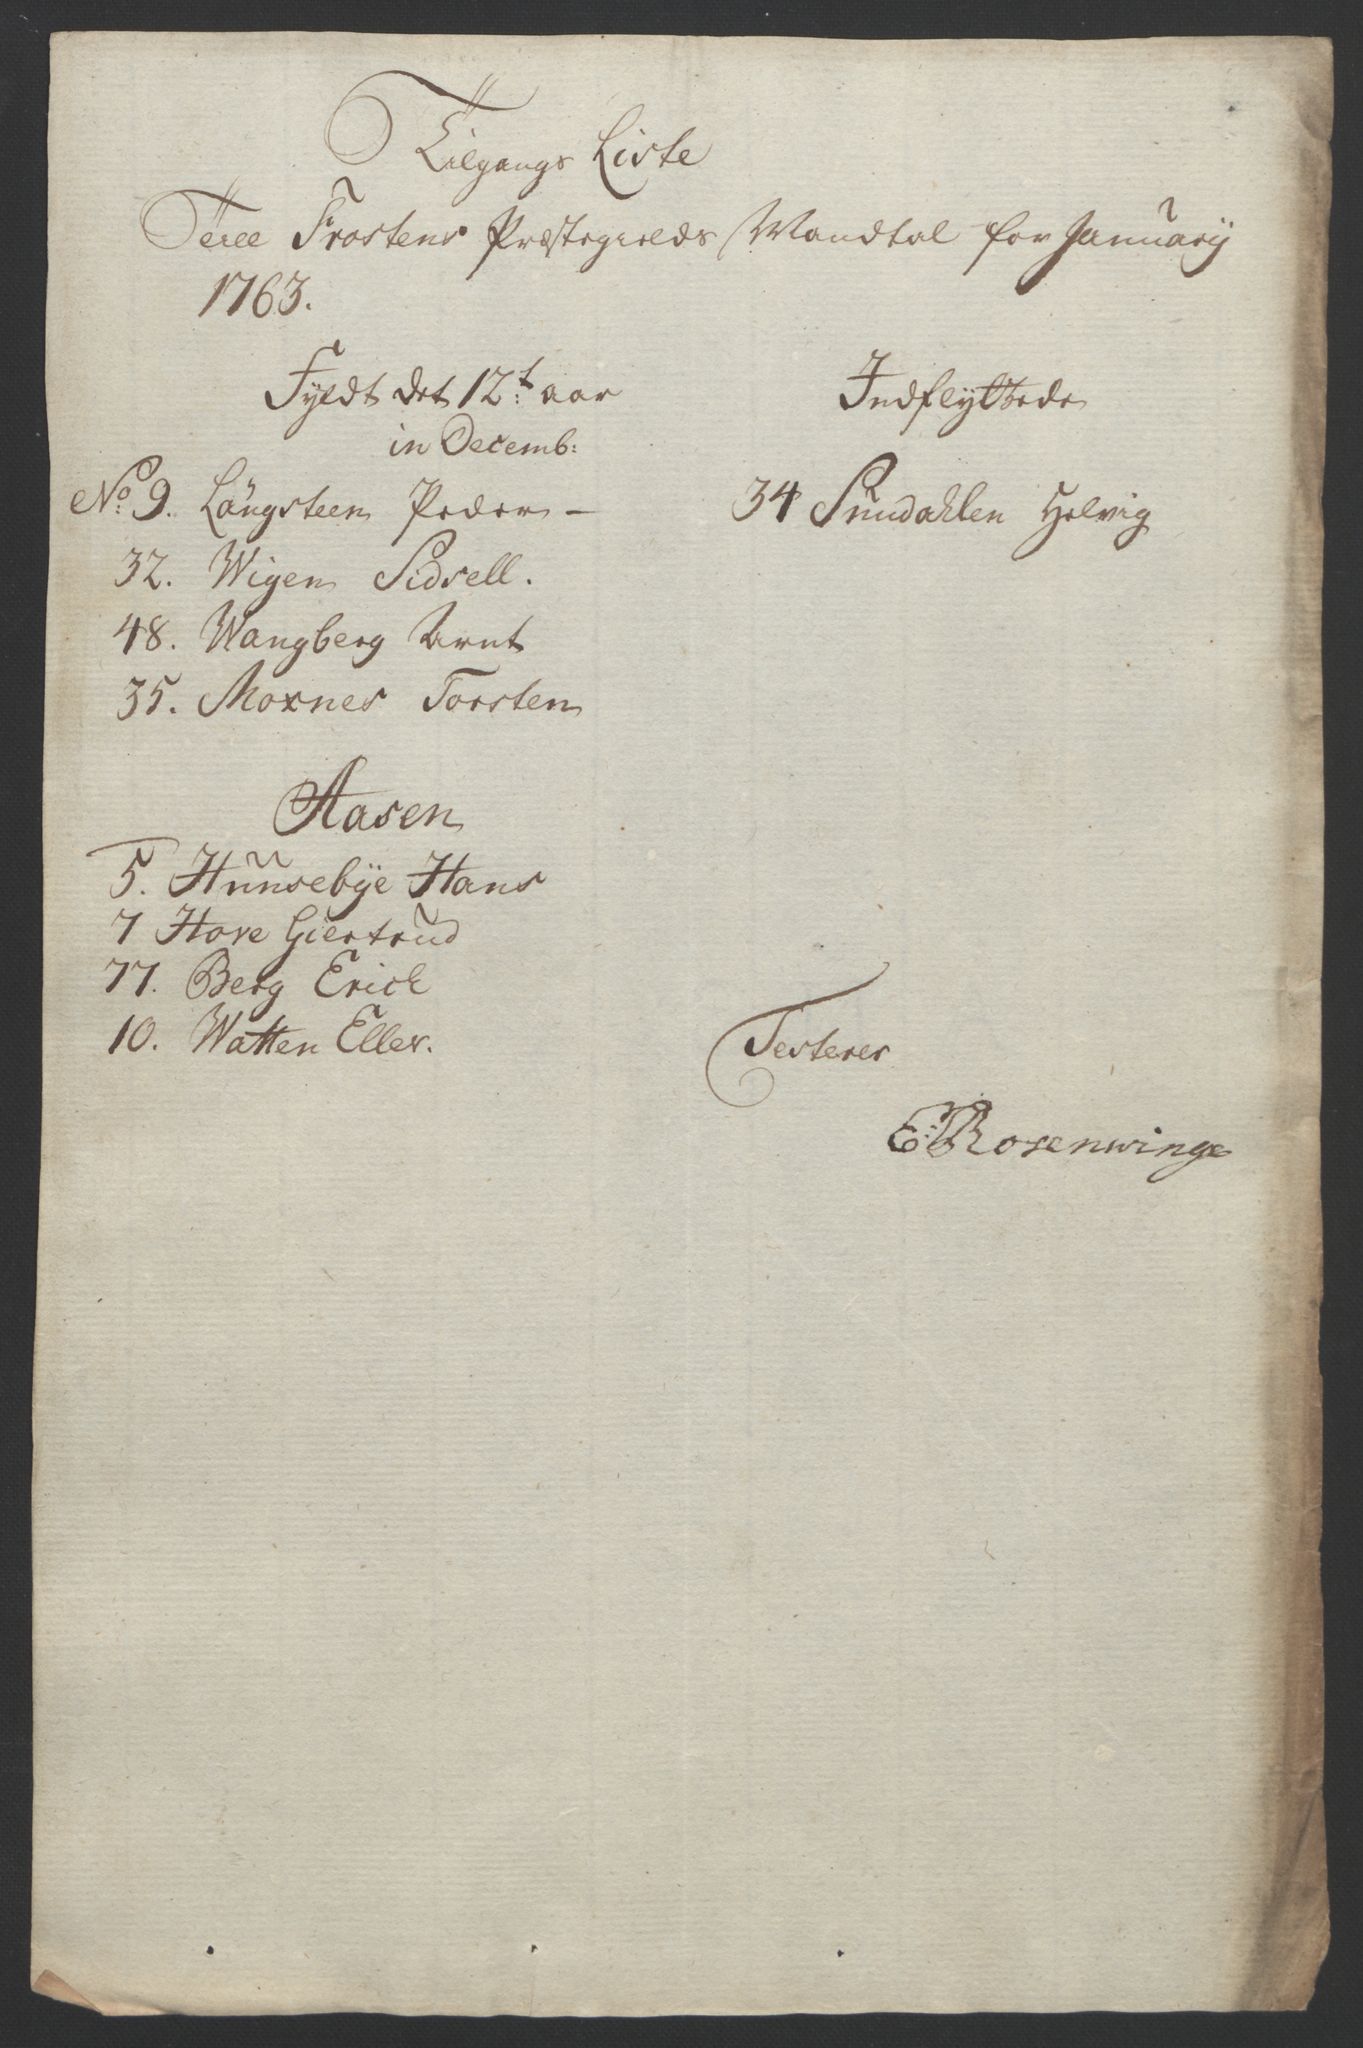 Tilgangs Liste
Till Frostens Præstegields Mandtal for January
1763.
Fyldt det 12:t aar
in Decemb:
No: 9. Längsteen Peder –
32. Wigen Sidsell.
48. Wangberg Arnt
35. Moxnes Torsten
Aasen
5. Hunsebye Hans
7 Hove Giertrud
77. Berg Erich
10. Watten Ellev.
Indflyttede
34 Sundahlen Helvig
Testerer
E: Rosenwinge